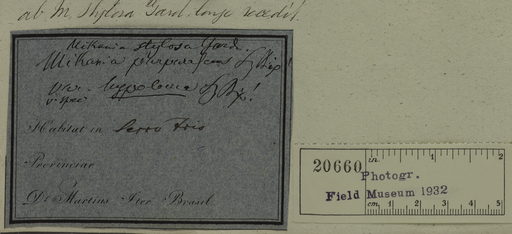 ab M. stylosa Gard. longe recedit.
Mikania stylosa Gard.
Mikania purpurascens
var. hypoleuca
Habitat in Serro Frio
Provinciae
Dr Martius Iter Brasil.
20660
in. 1 2
Photogr.
Field Museum 1932
cm. 1 2 3 4 5